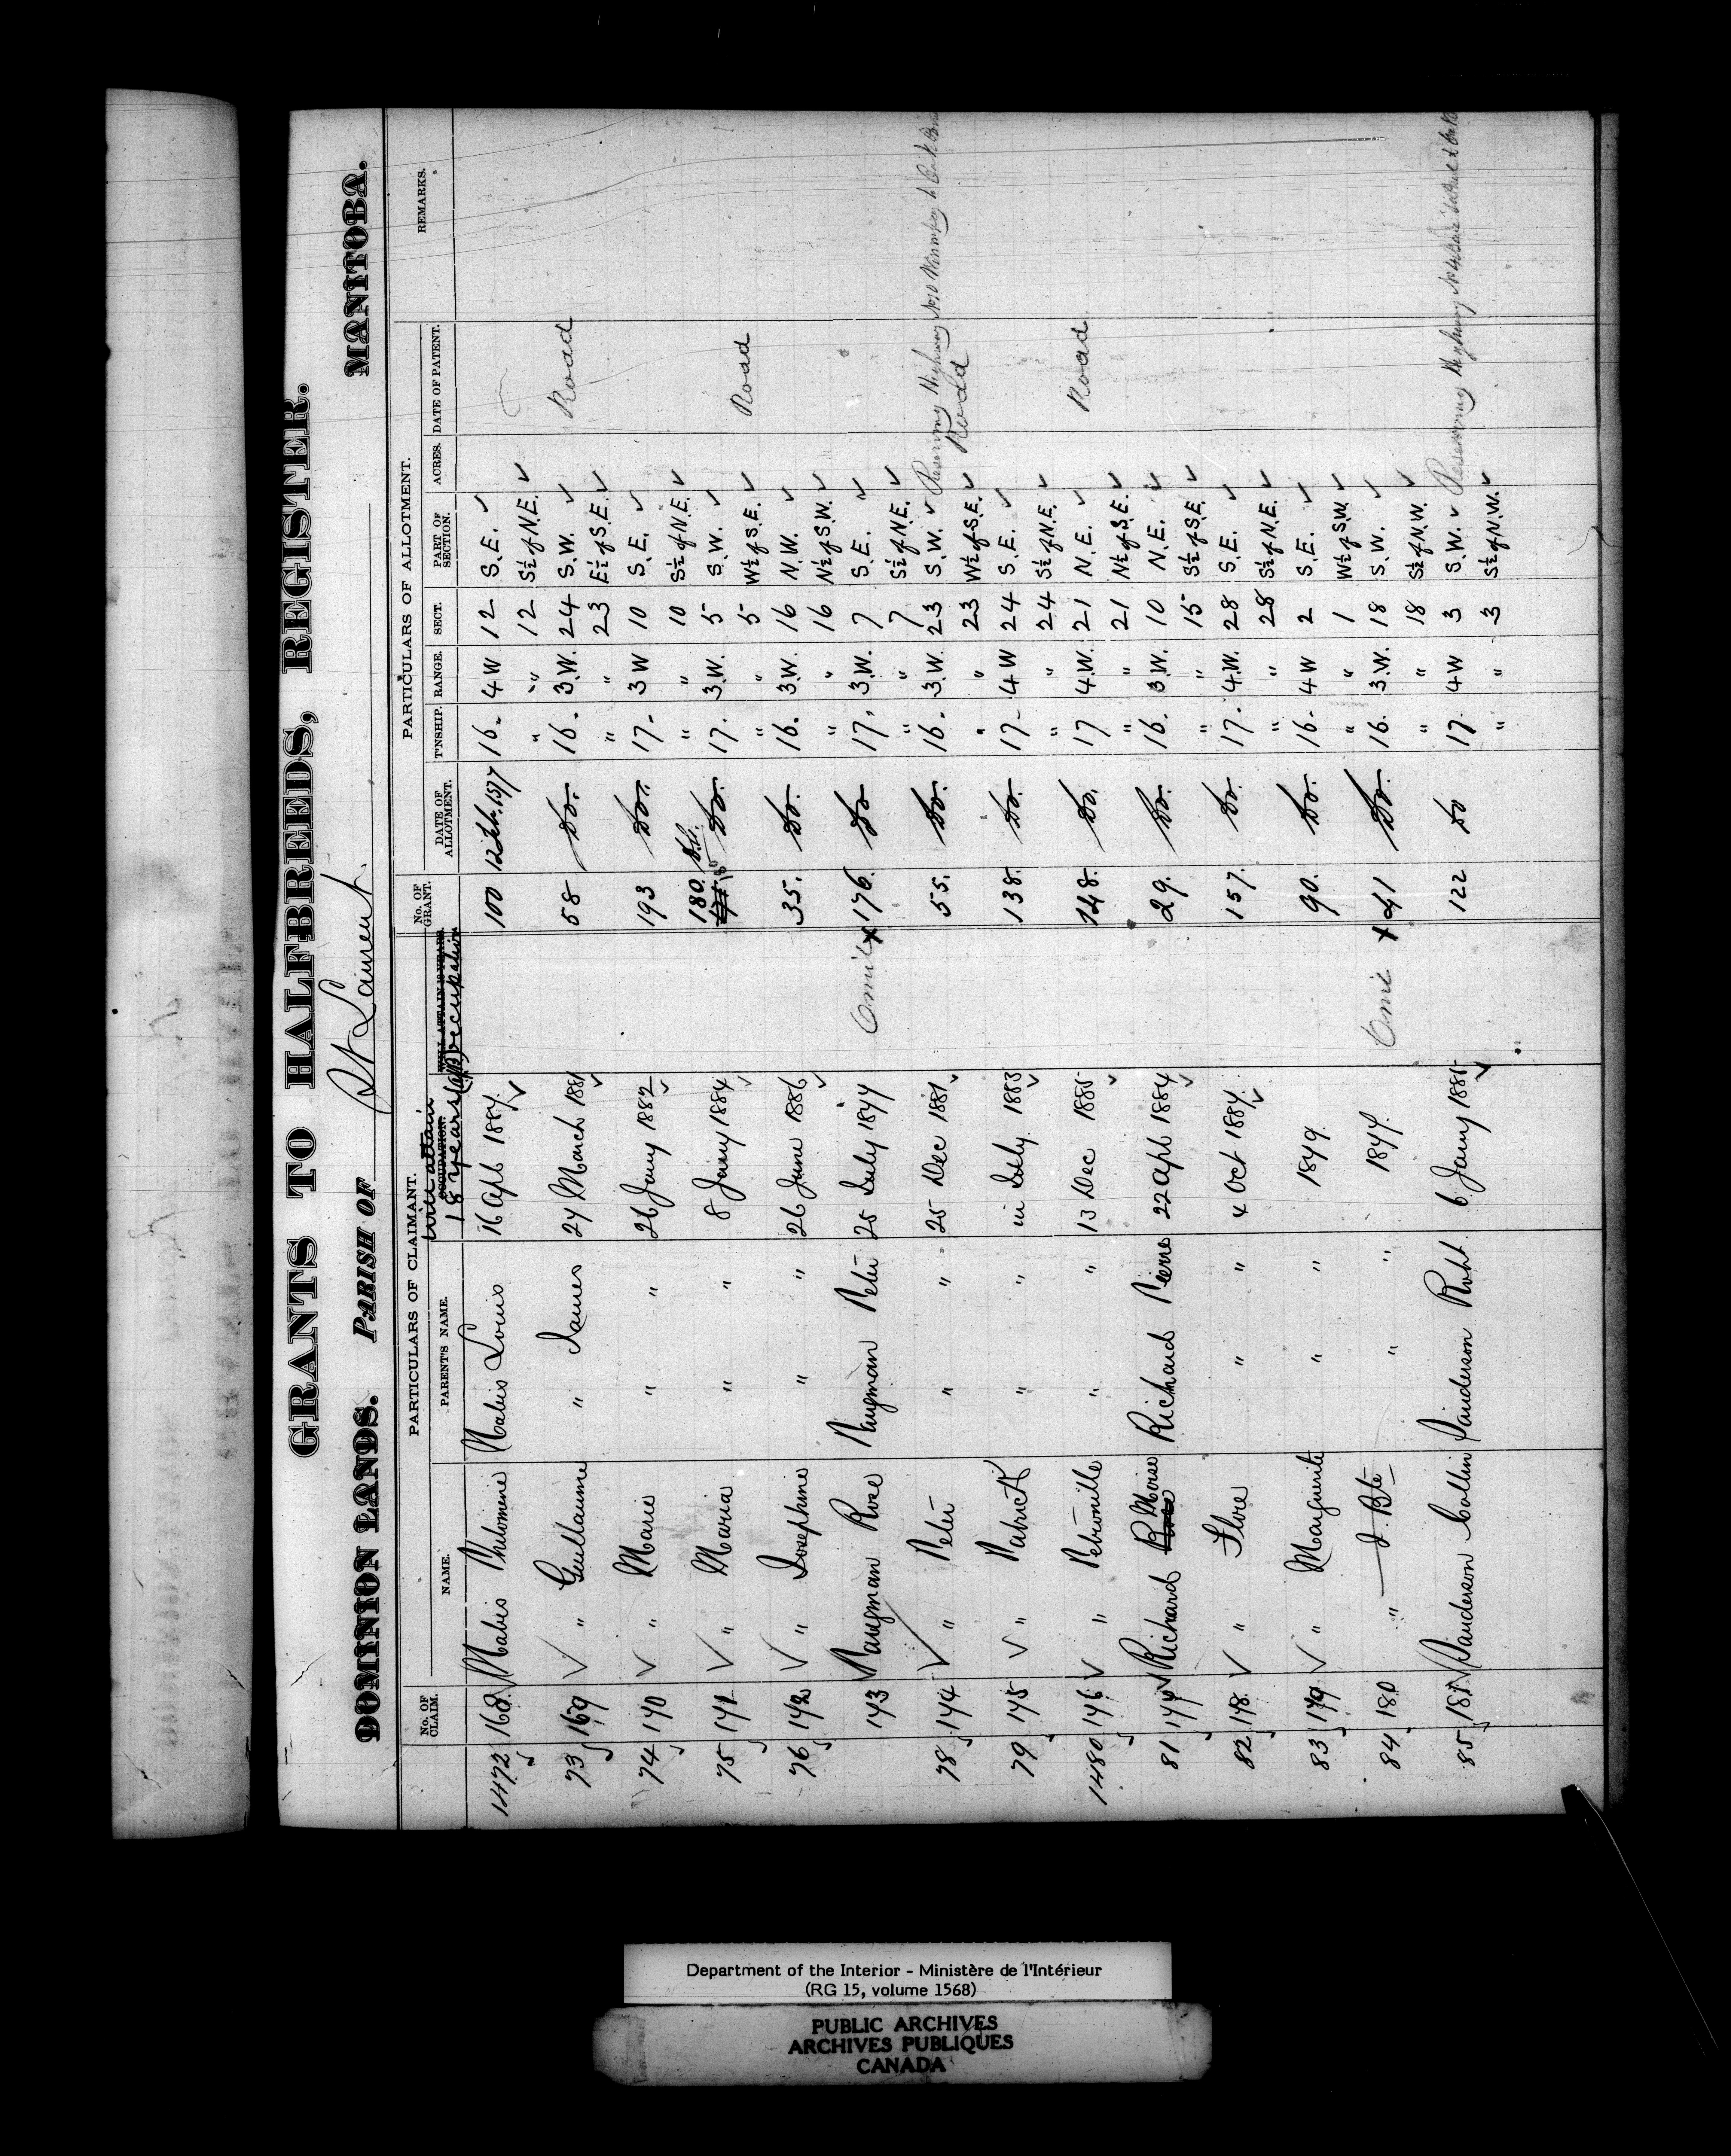 GRANTS TO HALFBREEDS, REGISTER.
DOMINION LANDS. PARISH OF St Laurent. MANITOBA.
PARTICULARS OF CLAIMANT. PARTICULARS OF ALLOTMENT.
No. OF CLAIM. NAME. PARENT'S NAME. OCCUPATION. will attain 18 years WILL ATTAIN 18 YEARS. Occupation No. OF GRANT. DATE OF ALLOTMENT. T'NSHIP. RANGE. SECT. PART OF SECTION. ACRES. DATE OF PATENT. REMARKS.
1472 168 Philomene Louis 16 Apl 1887. 100 16. 4 W 12 S.E.
" " 12 S½ of N.E.
73 169 " Guillaume " James 27 March 1881 58 Do. 16. 3.W. 24 S.W. Road
" " 23 E½ of S.E.
74 170 " Marie " " 26 Jany 1882 193 Do. 17. 3 W 10 S.E.
" " 10 S½ of N.E.
75 171 " Maria " " 8 Jany 1884 180. Do. 17. 3.W. 5 S.W. Road
" " 5 W½ of S.E.
76 172 " Josephine " " 26 June 1886 35. Do. 16. 3.W. 16 N.W.
" " 16 N½ of S.W.
173 Rose Peter 25 July 1877 Omit x 176. Do 17. 3.W. 7 S.E.
" " 7 S½ of N.E.
78 174 " Peter " " 25 Dec 1881 55. Do. 16. 3.W. 23 S.W. Reserving Highway No 10 Winnipeg to Oak
" " 23 W½ of S.E. Road
79 175 " Patrick " " in July 1883 138. Do. 17. 4 W 24 S.E.
" " 24 S½ of N.E.
1480 176 " Petronille " " 13 Dec 1885 148. Do. 17 4.W. 21 N.E. Road
" " 21 N½ of S.E.
81 177 Richard Moise Richard Pierre 22 Apl 1884 29. Do. 16. 3.W. 10 N.E.
" " 15 S½ of S.E.
82 178 " Flore " " 4 Oct 1887. 157. Do. 17. 4.W. 28 S.E.
" " 28 S½ of N.E.
83 179 " Marguerite " " 1879. 90. Do. 16. 4 W 2 S.E.
" " 1 W½ of S.W.
84 180 " J. Bte " " 1877. Omit x 41 Do. 16. 3.W. 18 S.W.
" " 18 S½ of N.W.
85 181 Sanderson Collin Sanderson Robt. 6 Jany 1885 122 Do 17. 4 W 3 S.W. Reserving Highway
" " 3 S½ of N.W.
Department of the Interior - Ministère de l'Intérieur
(RG 15, volume 1568)
PUBLIC ARCHIVES
ARCHIVES PUBLIQUES
CANADA